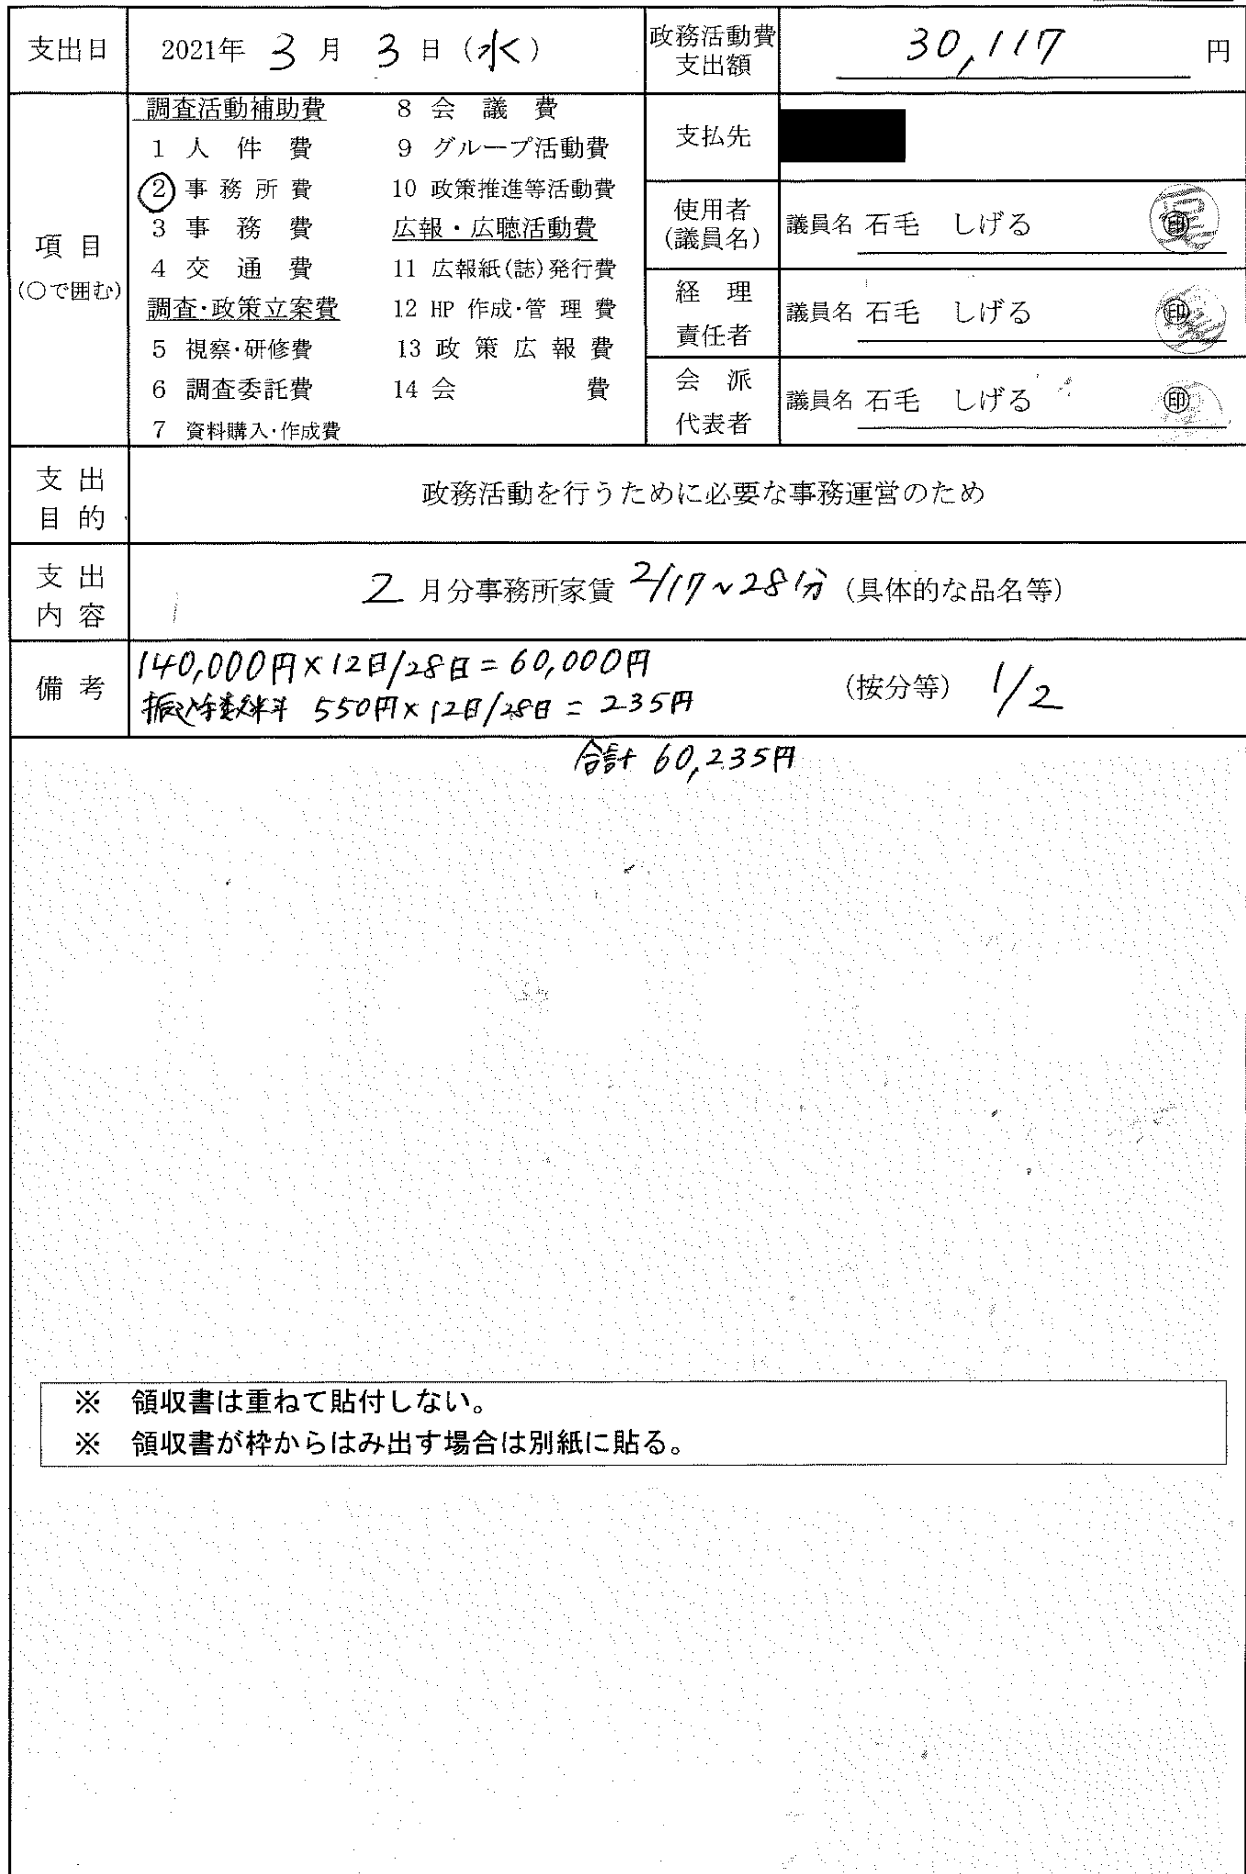 支出日 2021年 3 月 3 日 (水) 政務活動費支出額 30,117 円
項目 (○で囲む)
調査活動補助費
1 人件費
② 事務所費
3 事務費
4 交通費
調査・政策立案費
5 視察・研修費
6 調査委託費
7 資料購入・作成費
8 会議費
9 グループ活動費
10 政策推進等活動費
広報・広聴活動費
11 広報紙(誌)発行費
12 HP 作成・管理費
13 政策広報費
14 会費
支払先
使用者(議員名) 議員名 石毛 しげる ㊞
経理責任者 議員名 石毛 しげる ㊞
会派代表者 議員名 石毛 しげる ㊞
支出目的 政務活動を行うために必要な事務運営のため
支出内容 2 月分事務所家賃 2/17~28分 (具体的な品名等)
備考 140,000円×12日/28日=60,000円
振込手数料 550円×12日/28日=235円 (按分等) 1/2
合計 60,235円
※ 領収書は重ねて貼付しない。
※ 領収書が枠からはみ出す場合は別紙に貼る。